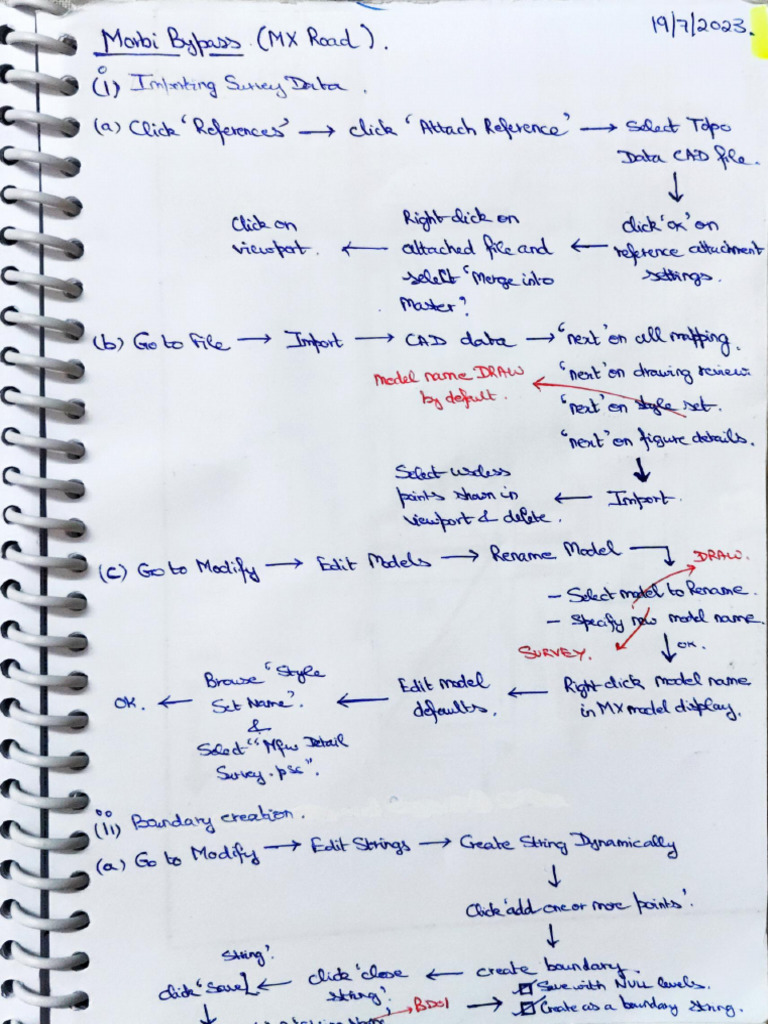 19/7/2023.
Morbi Bypass (MX Road).
(i) Importing Survey Data.
(a) Click 'References' → click 'Attach Reference' → Select Topo
Data CAD file.
↓
click 'ok' on
reference attachment
settings.
←
Right click on
attached file and
select 'Merge into
Master'.
←
Click on
viewport.
(b) Go to File → Import → CAD data → 'next' on all mapping.
'next' on drawing review.
'next' on style set.
'next' on figure details.
Model name DRAW
by default.
↓
Import.
←
Select useless
points shown in
viewport & delete.
(c) Go to Modify → Edit Models → Rename Model
- Select model to Rename.
DRAW.
- Specify new model name.
SURVEY.
↓ OK.
Right click model name
in MX model display.
←
Edit model
defaults.
←
Browse "Style
Set Name".
&
Select "Mfw Detail
Survey.pss".
← OK.
(ii) Boundary creation.
(a) Go to Modify → Edit Strings → Create String Dynamically
↓
Click 'add one or more points'.
↓
create boundary.
← click 'close
string'.
← click 'Save
string'.
↓
BD01 →
Save with NULL levels.
Create as a boundary string.